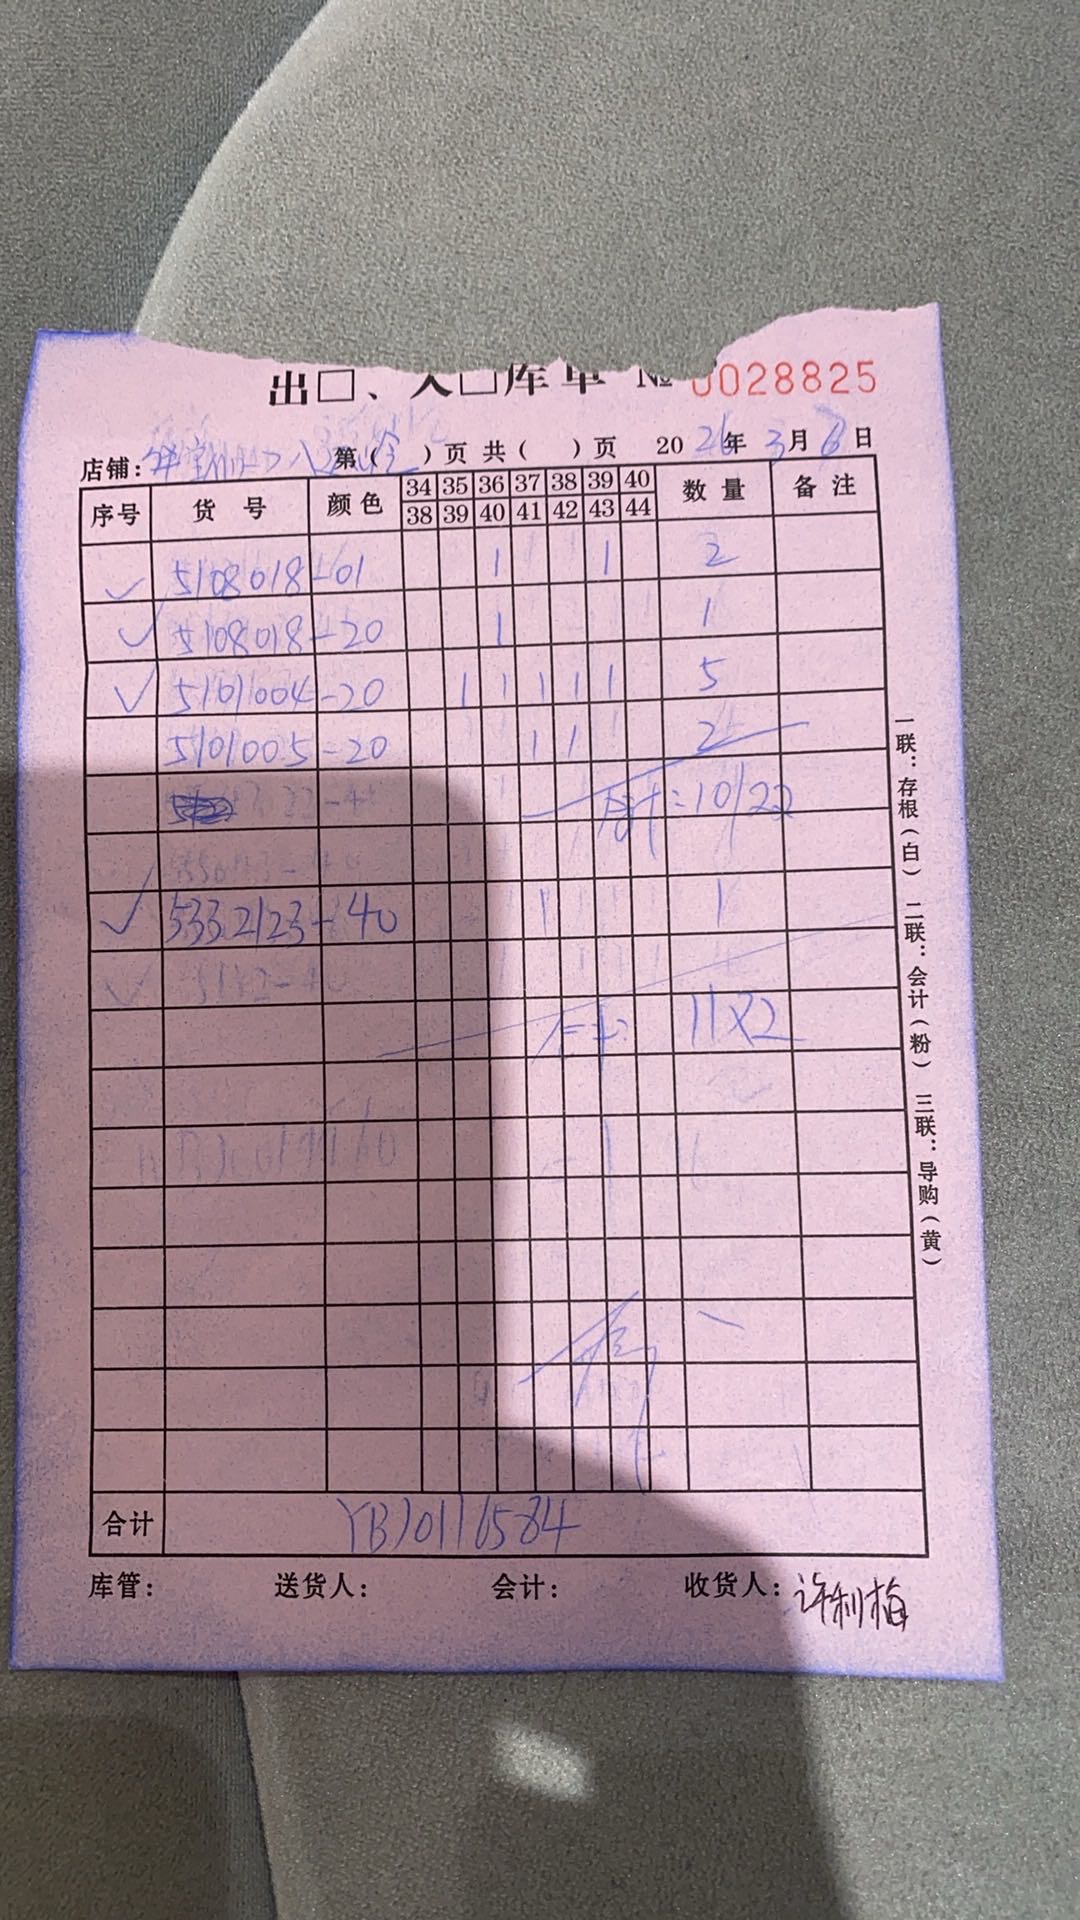 出□、入□库单 № 0028825
店铺: 第( )页 共( )页 2026年3月6日
序号 货号 颜色 34 35 36 37 38 39 40 数量 备注
38 39 40 41 42 43 44
✓ 5108018-01 1 1 2
✓ 5108018-20 1 1
✓ 5101004-20 1 1 1 1 1 5
5101005-20 1 1 2
:10/22
✓ 5332123-40 1 1
11X2
合计 YB)0116584
库管: 送货人: 会计: 收货人:许利梅
一联:存根(白) 二联:会计(粉) 三联:导购(黄)